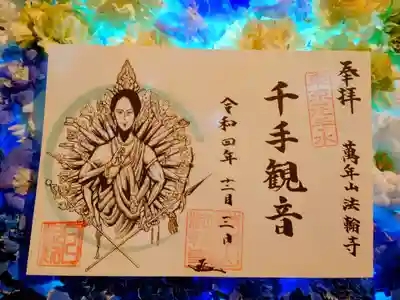 奉拝
萬年山法輪寺
千手観音
令和四年十二月三日